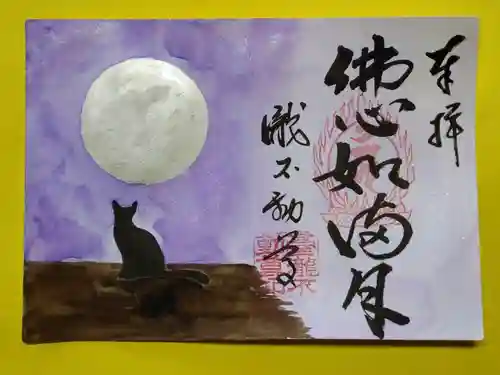 奉拝
佛心如満月
瀧不動堂